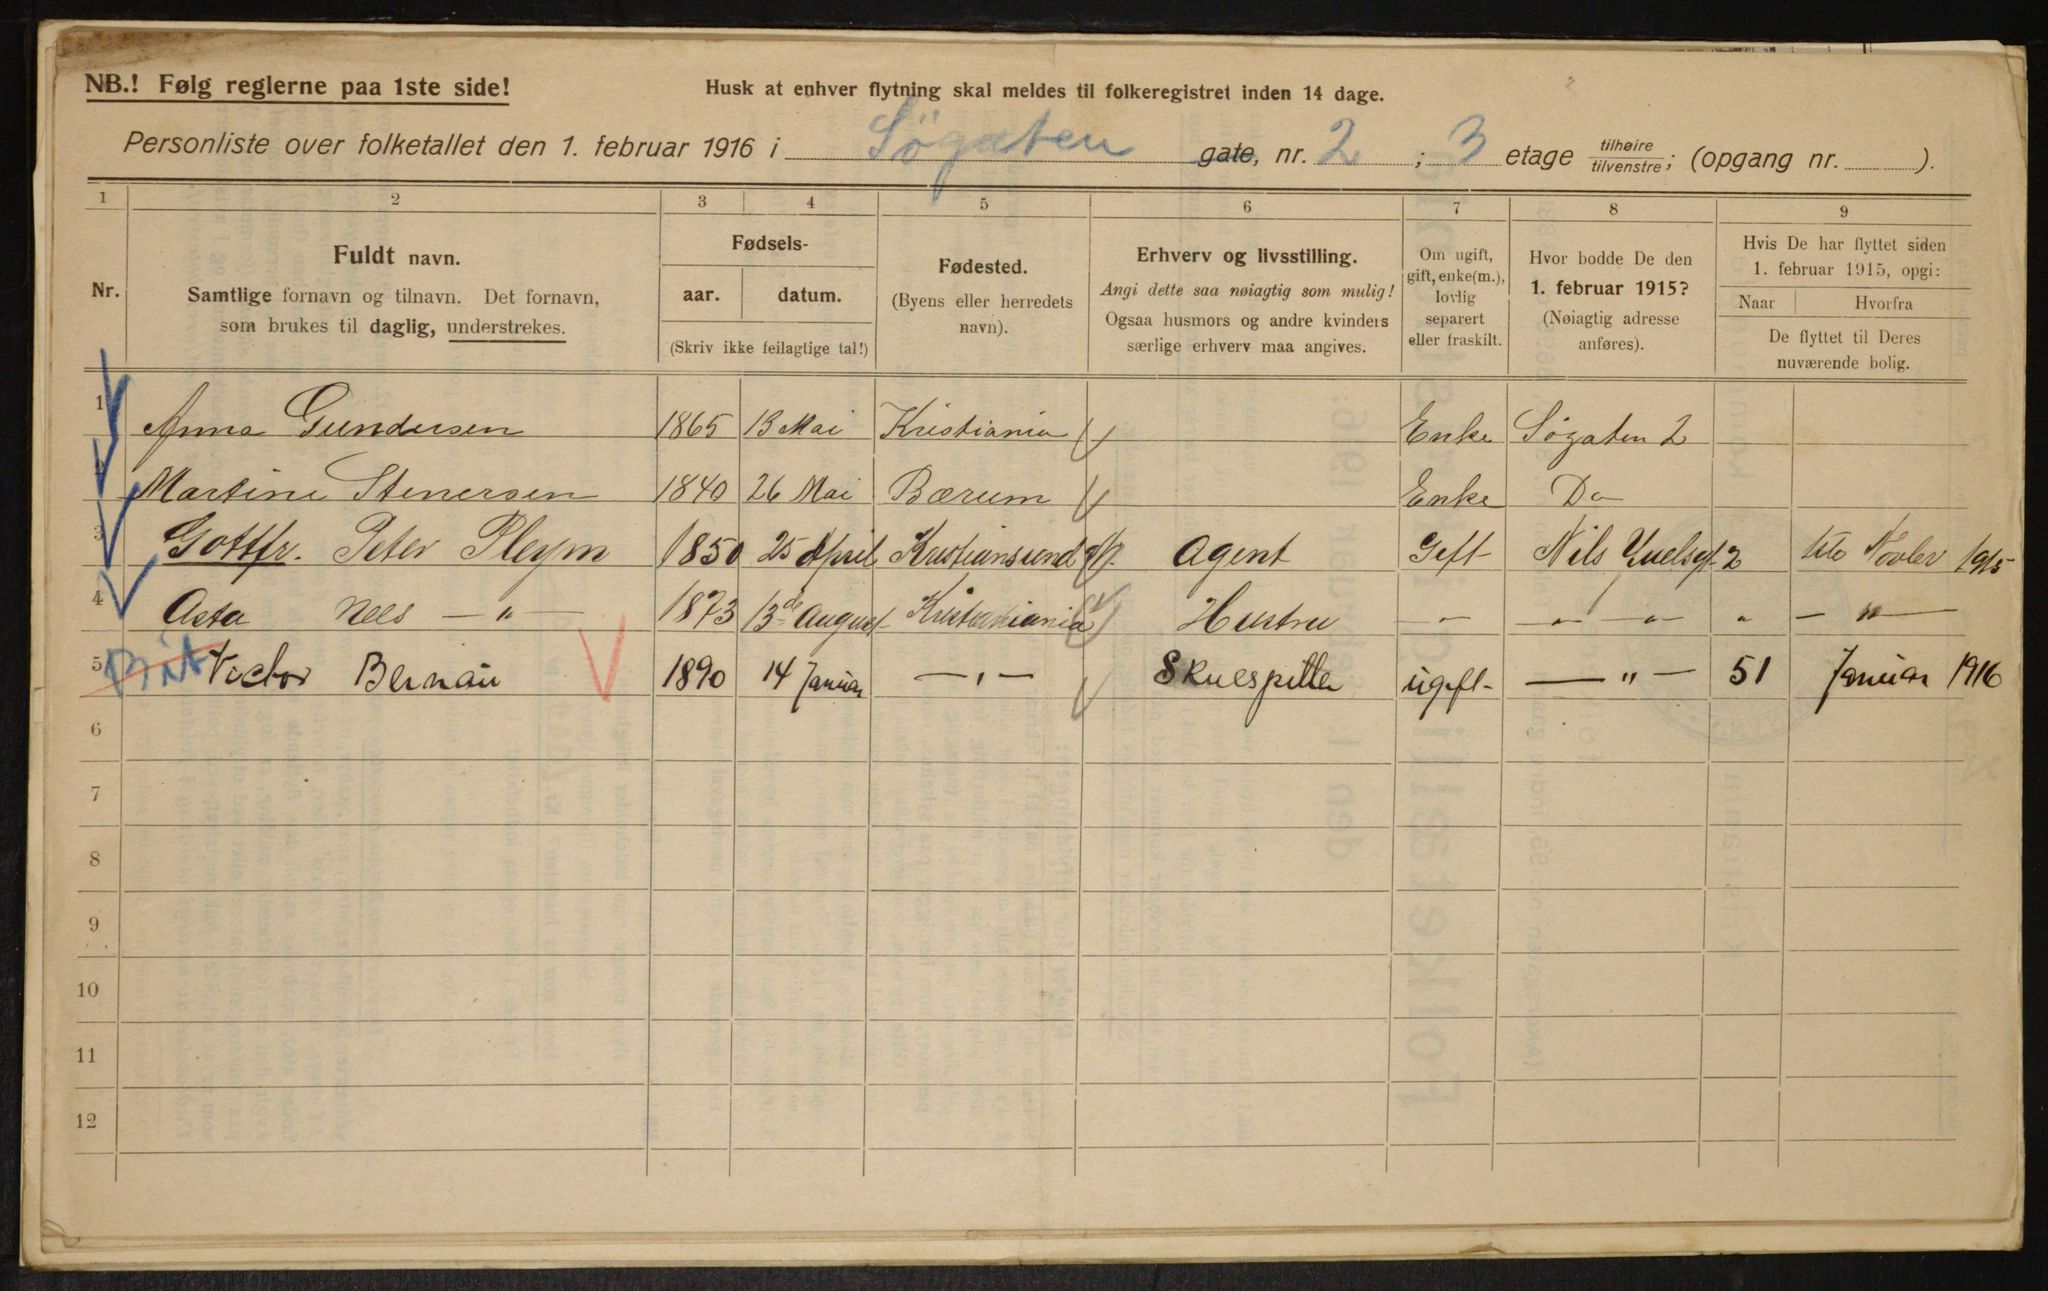 NB.! Følg reglerne paa 1ste side!
Husk at enhver flytning skal meldes til folkeregistret inden 14 dage.
Personliste over folketallet den 1. februar 1916 i Søgaten gate, nr. 2 ; 3 etage tilhøire tilvenstre; (opgang nr. ).
1 2 3 4 5 6 7 8 9
Nr.
Fuldt navn.
Samtlige fornavn og tilnavn. Det fornavn,
som brukes til daglig, understrekes.
Fødsels-
aar. datum.
(Skriv ikke feilagtige tal!)
Fødested.
(Byens eller herredets
navn).
Erhverv og livsstilling.
Angi dette saa nøiagtig som mulig!
Ogsaa husmors og andre kvinders
særlige erhverv maa angives.
Om ugift,
gift, enke(m.),
lovlig
separert
eller fraskilt.
Hvor bodde De den
1. februar 1915?
(Nøiagtig adresse
anføres).
Hvis De har flyttet siden
1. februar 1915, opgi:
Naar Hvorfra
De flyttet til Deres
nuværende bolig.
1 Anna Gundersen 1865 13 Mai Kristiania Enke Søgaten 2
2 Martine Stenersen 1840 26 Mai Bærum Enke Do
3 Gottfr. Peter Pleym 1850 25 April Kristiansund Agent Gift Nils Juelsgt 2 Novbr 1915
4 Asta — " — 1873 13de August Kristiania Hustru — " — " — " " — " —
5 Victor Bernau 1890 14 Januar — " — Skuespiller ugift — " — 51 Januar 1916
6
7
8
9
10
11
12